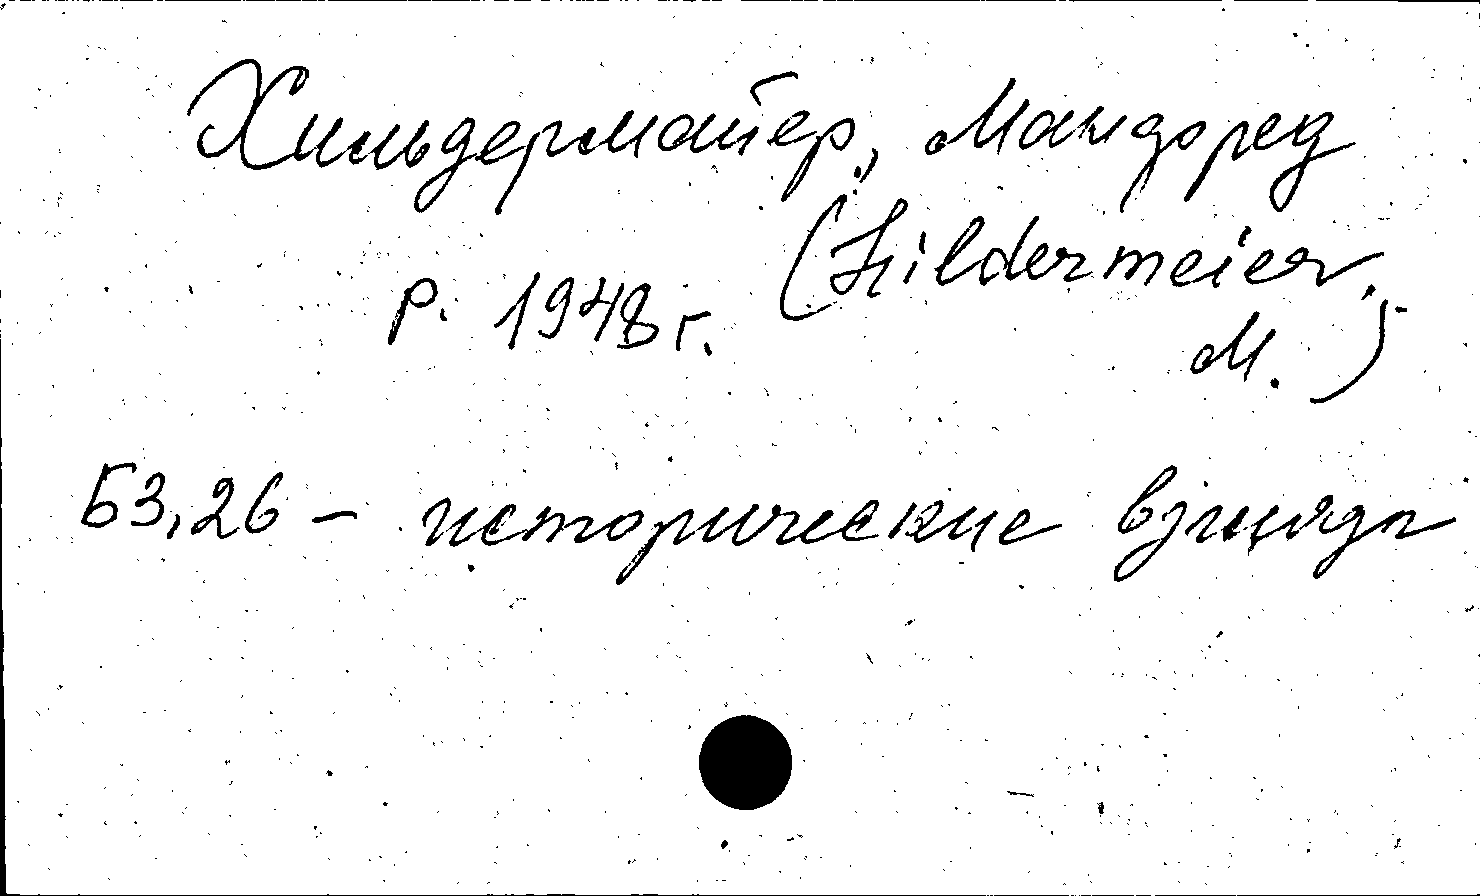 Хильдермайер, Манфред
(Hildermeier,
р. 1948 г.
М.)
Б3,26 – исторические взгляды